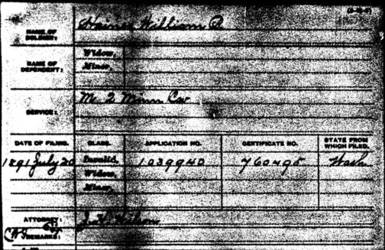 NAME OF SOLDIER: Haines William
NAME OF DEPENDENT: Widow,
Minor,
SERVICE: M. 2 Minn Cav
DATE OF FILING. CLASS. APPLICATION NO. CERTIFICATE NO. STATE FROM WHICH FILED.
1891 July 20 Invalid, 1039940 760495 Wash
Widow,
Minor,
ATTORNEY:
REMARKS: